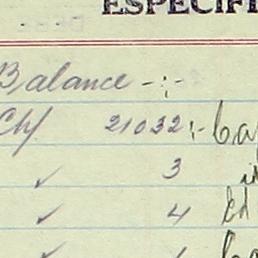 ESPECIFI
Balance -:-
Ch/ 21032:- Ca
✓ 3
✓ 4 Ed
✓